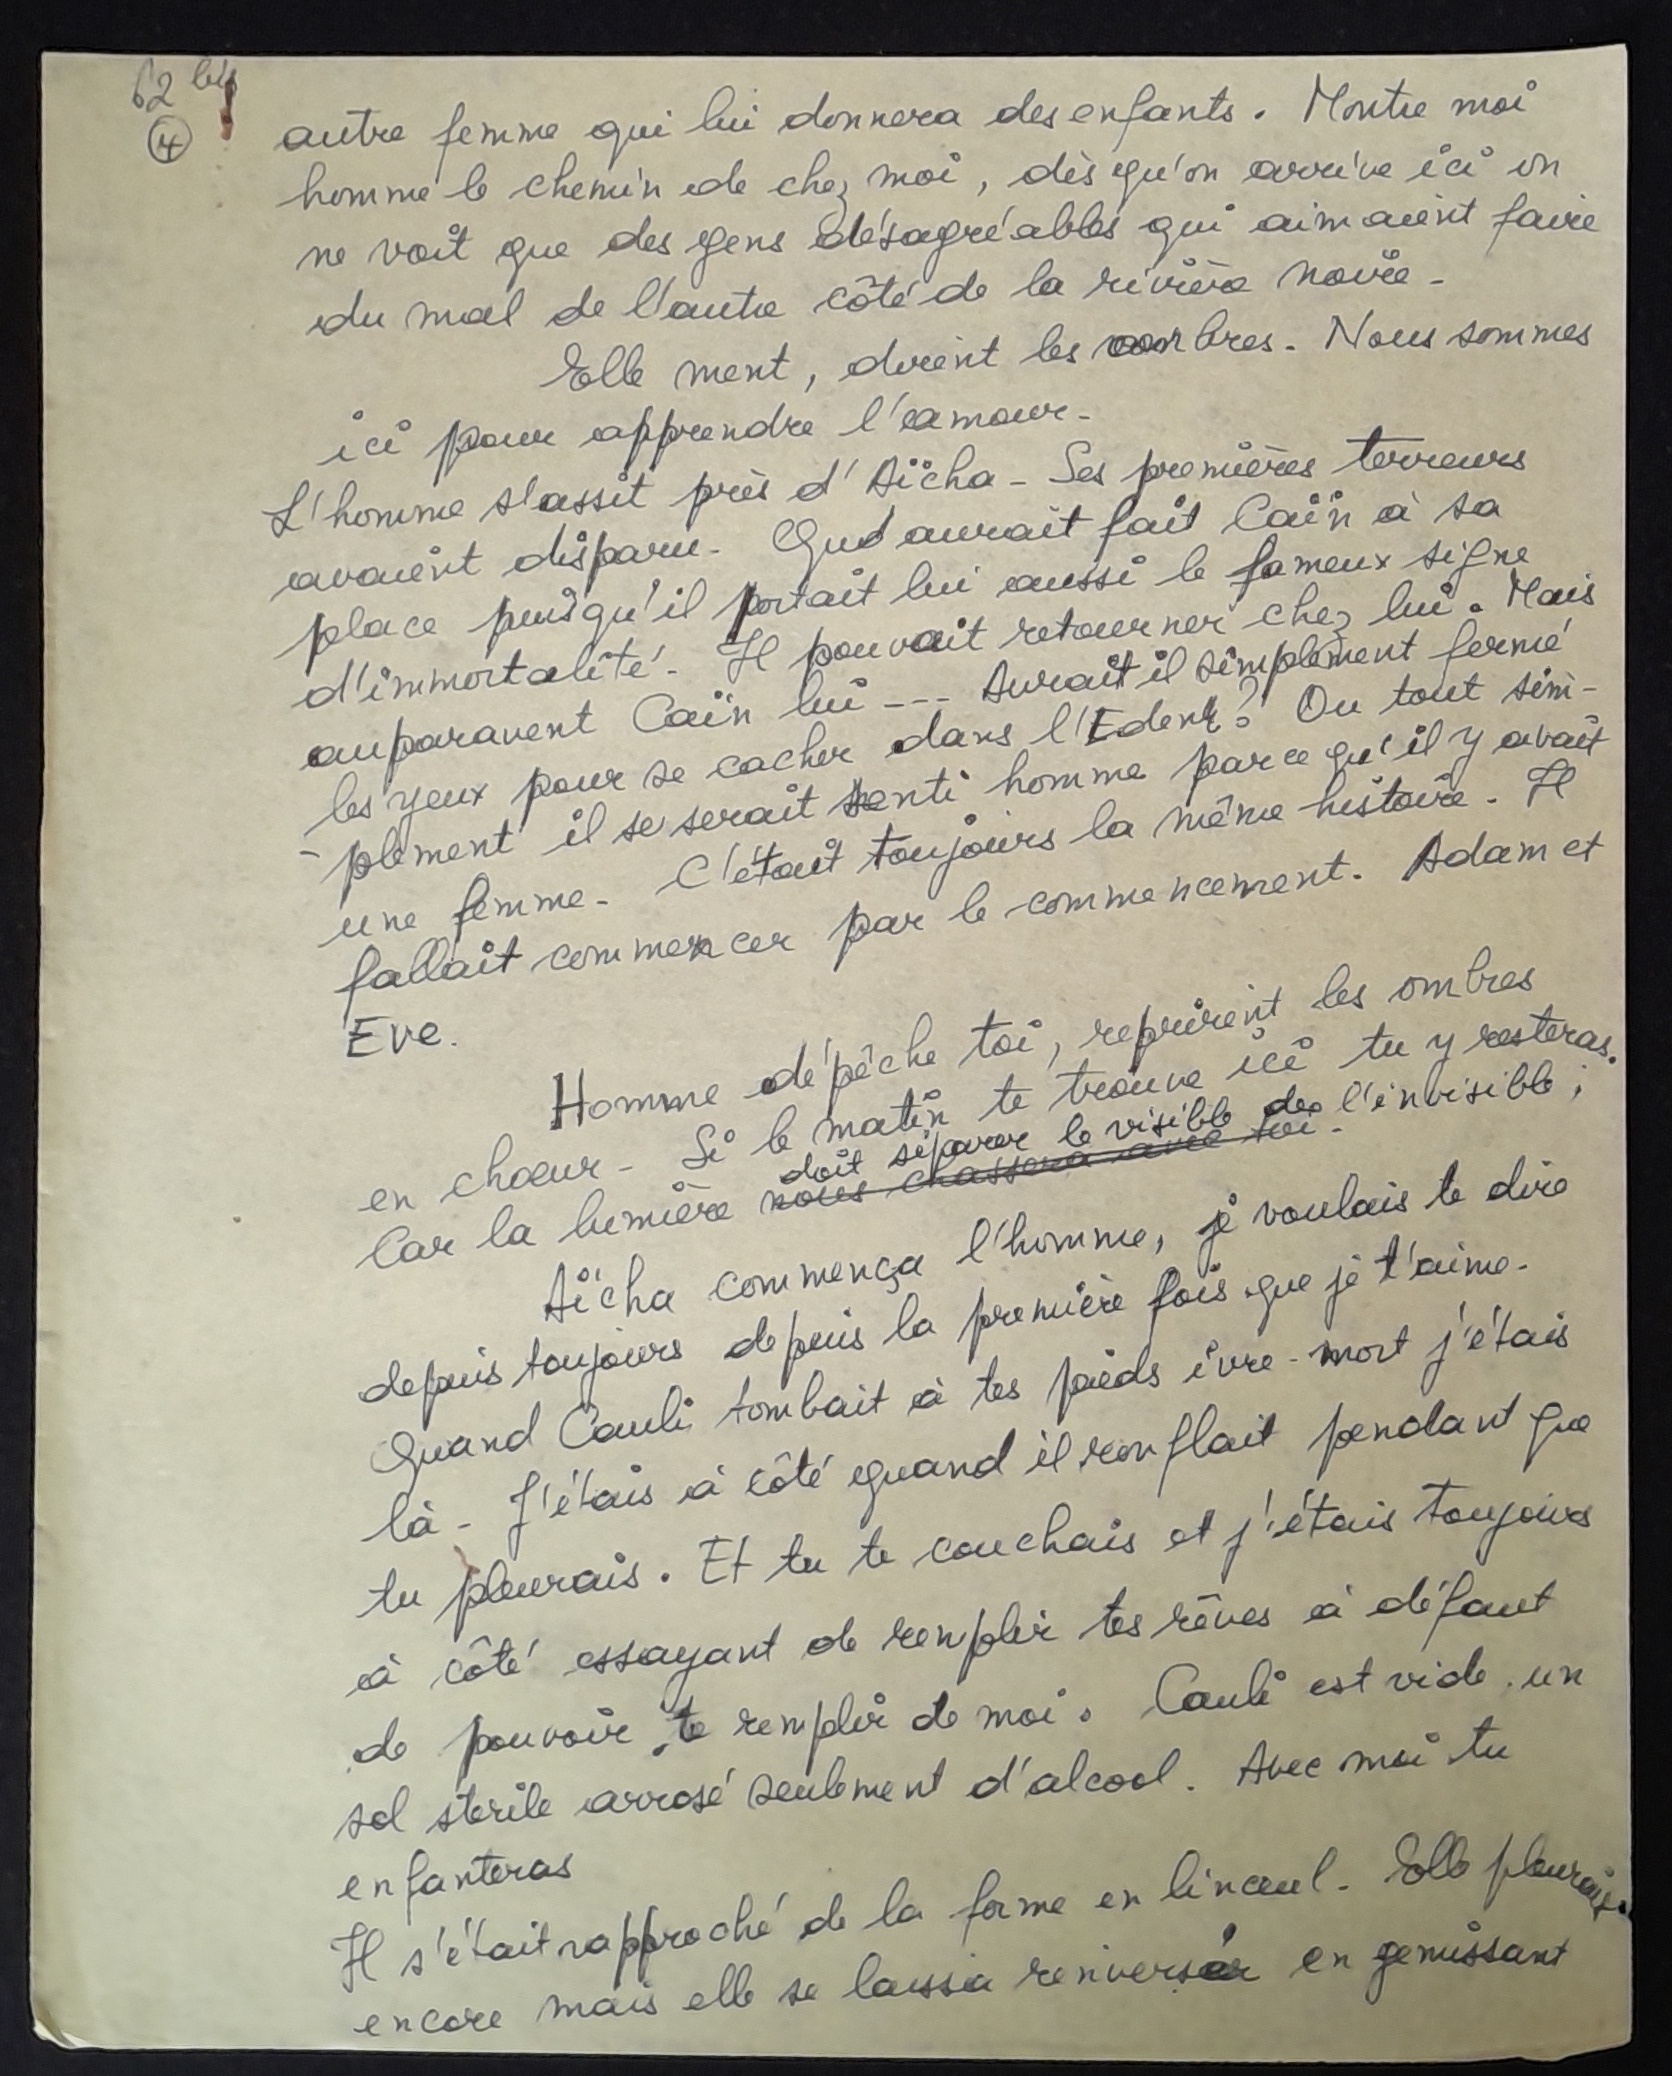 62 bis
4
autre femme qui lui donnera des enfants. Montre moi
homme le chemin de chez moi, dès qu'on arrive ici on
ne voit que des gens désagréables qui aimaient faire
du mal de l'autre côté de la rivière noire -
Elle ment, dirent les ombres - Nous sommes
ici pour apprendre l'amour -
L'homme s'assit près d'Aïcha - Ses premières terreurs
avaient disparu - Qu'aurait fait Caïn à sa
place puisqu'il portait lui aussi le fameux signe
d'immortalité - Il pouvait retourner chez lui. Mais
auparavent Caïn lui --- Aurait il simplement fermé
les yeux pour se cacher dans l'Eden? Ou tout sim-
- plement il se serait senti homme parce qu'il y avait
une femme - C'était toujours la même histoire - Il
fallait commencer par le commencement. Adam et
Eve.
Homme dépêche toi, reprirent les ombres
en chœur - Si le matin te trouve ici tu y resteras.
doit séparer le visible de l'invisible;
Car la lumière nous chassera avec toi -
Aïcha commença l'homme, je voulais te dire
depuis toujours depuis la première fois que je t'aime -
Quand Cauli tombait à tes pieds ivre-mort j'étais
là - J'étais à côté quand il ronflait pendant que
tu pleurais. Et tu te couchais et j'étais toujours
à côté essayant de remplir tes rêves à défaut
de pouvoir te remplir de moi. Cauli est vide, un
sol sterile arrosé seulement d'alcool. Avec moi tu
enfanteras
Il s'était rapproché de la forme en linceul - Elle pleurait
encore mais elle se laissa renverser en gemissant